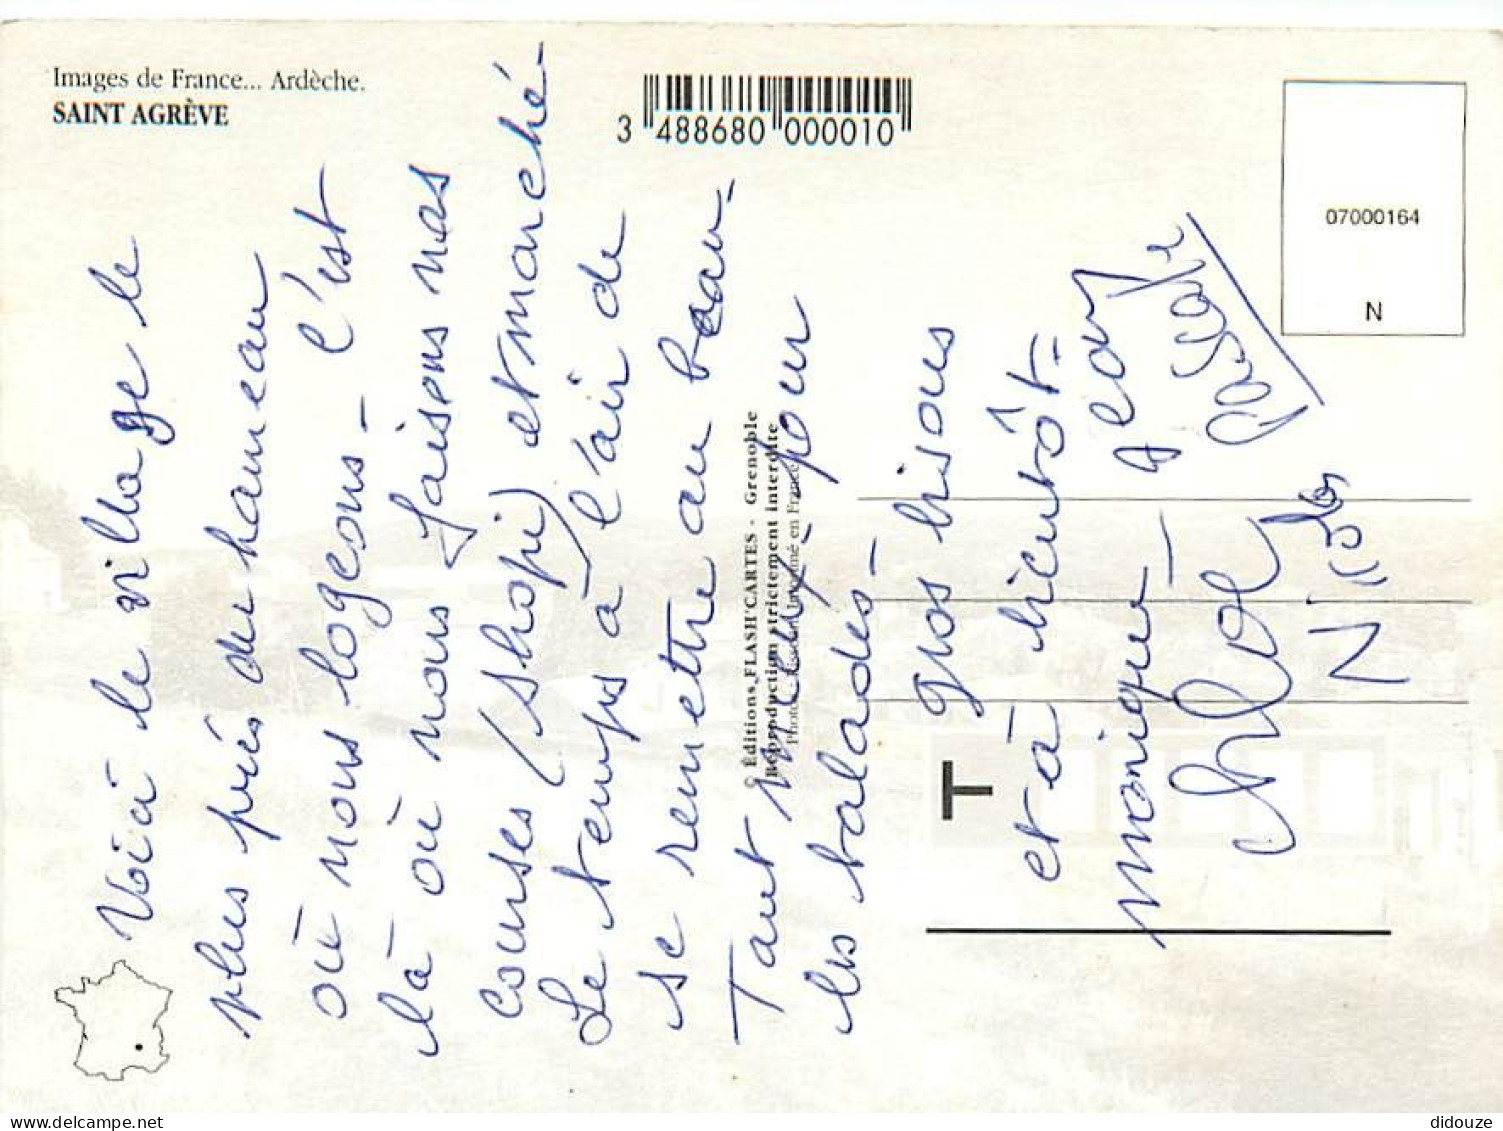 Images de France... Ardèche.
SAINT AGRÈVE
3 488680 000010
07000164
N
Voici le village le
plus près du hameau
où nous logeons - C'est
là où nous faisons nos
courses (shopi) et marché -
Le temps à l'air de
se remettre au beau -
Tant mieux - pour
les balades -
gros bisous
et à bientôt -
monique - Jean
Pascale
Nicolas
© Éditions FLASH'CARTES - Grenoble
Reproduction strictement interdite
Imprimé en France
T
didouze